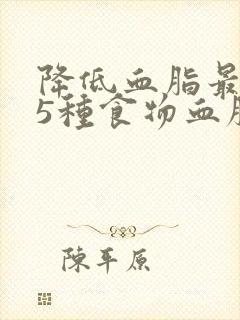 降低血脂最
5種食物血脂
陳平原